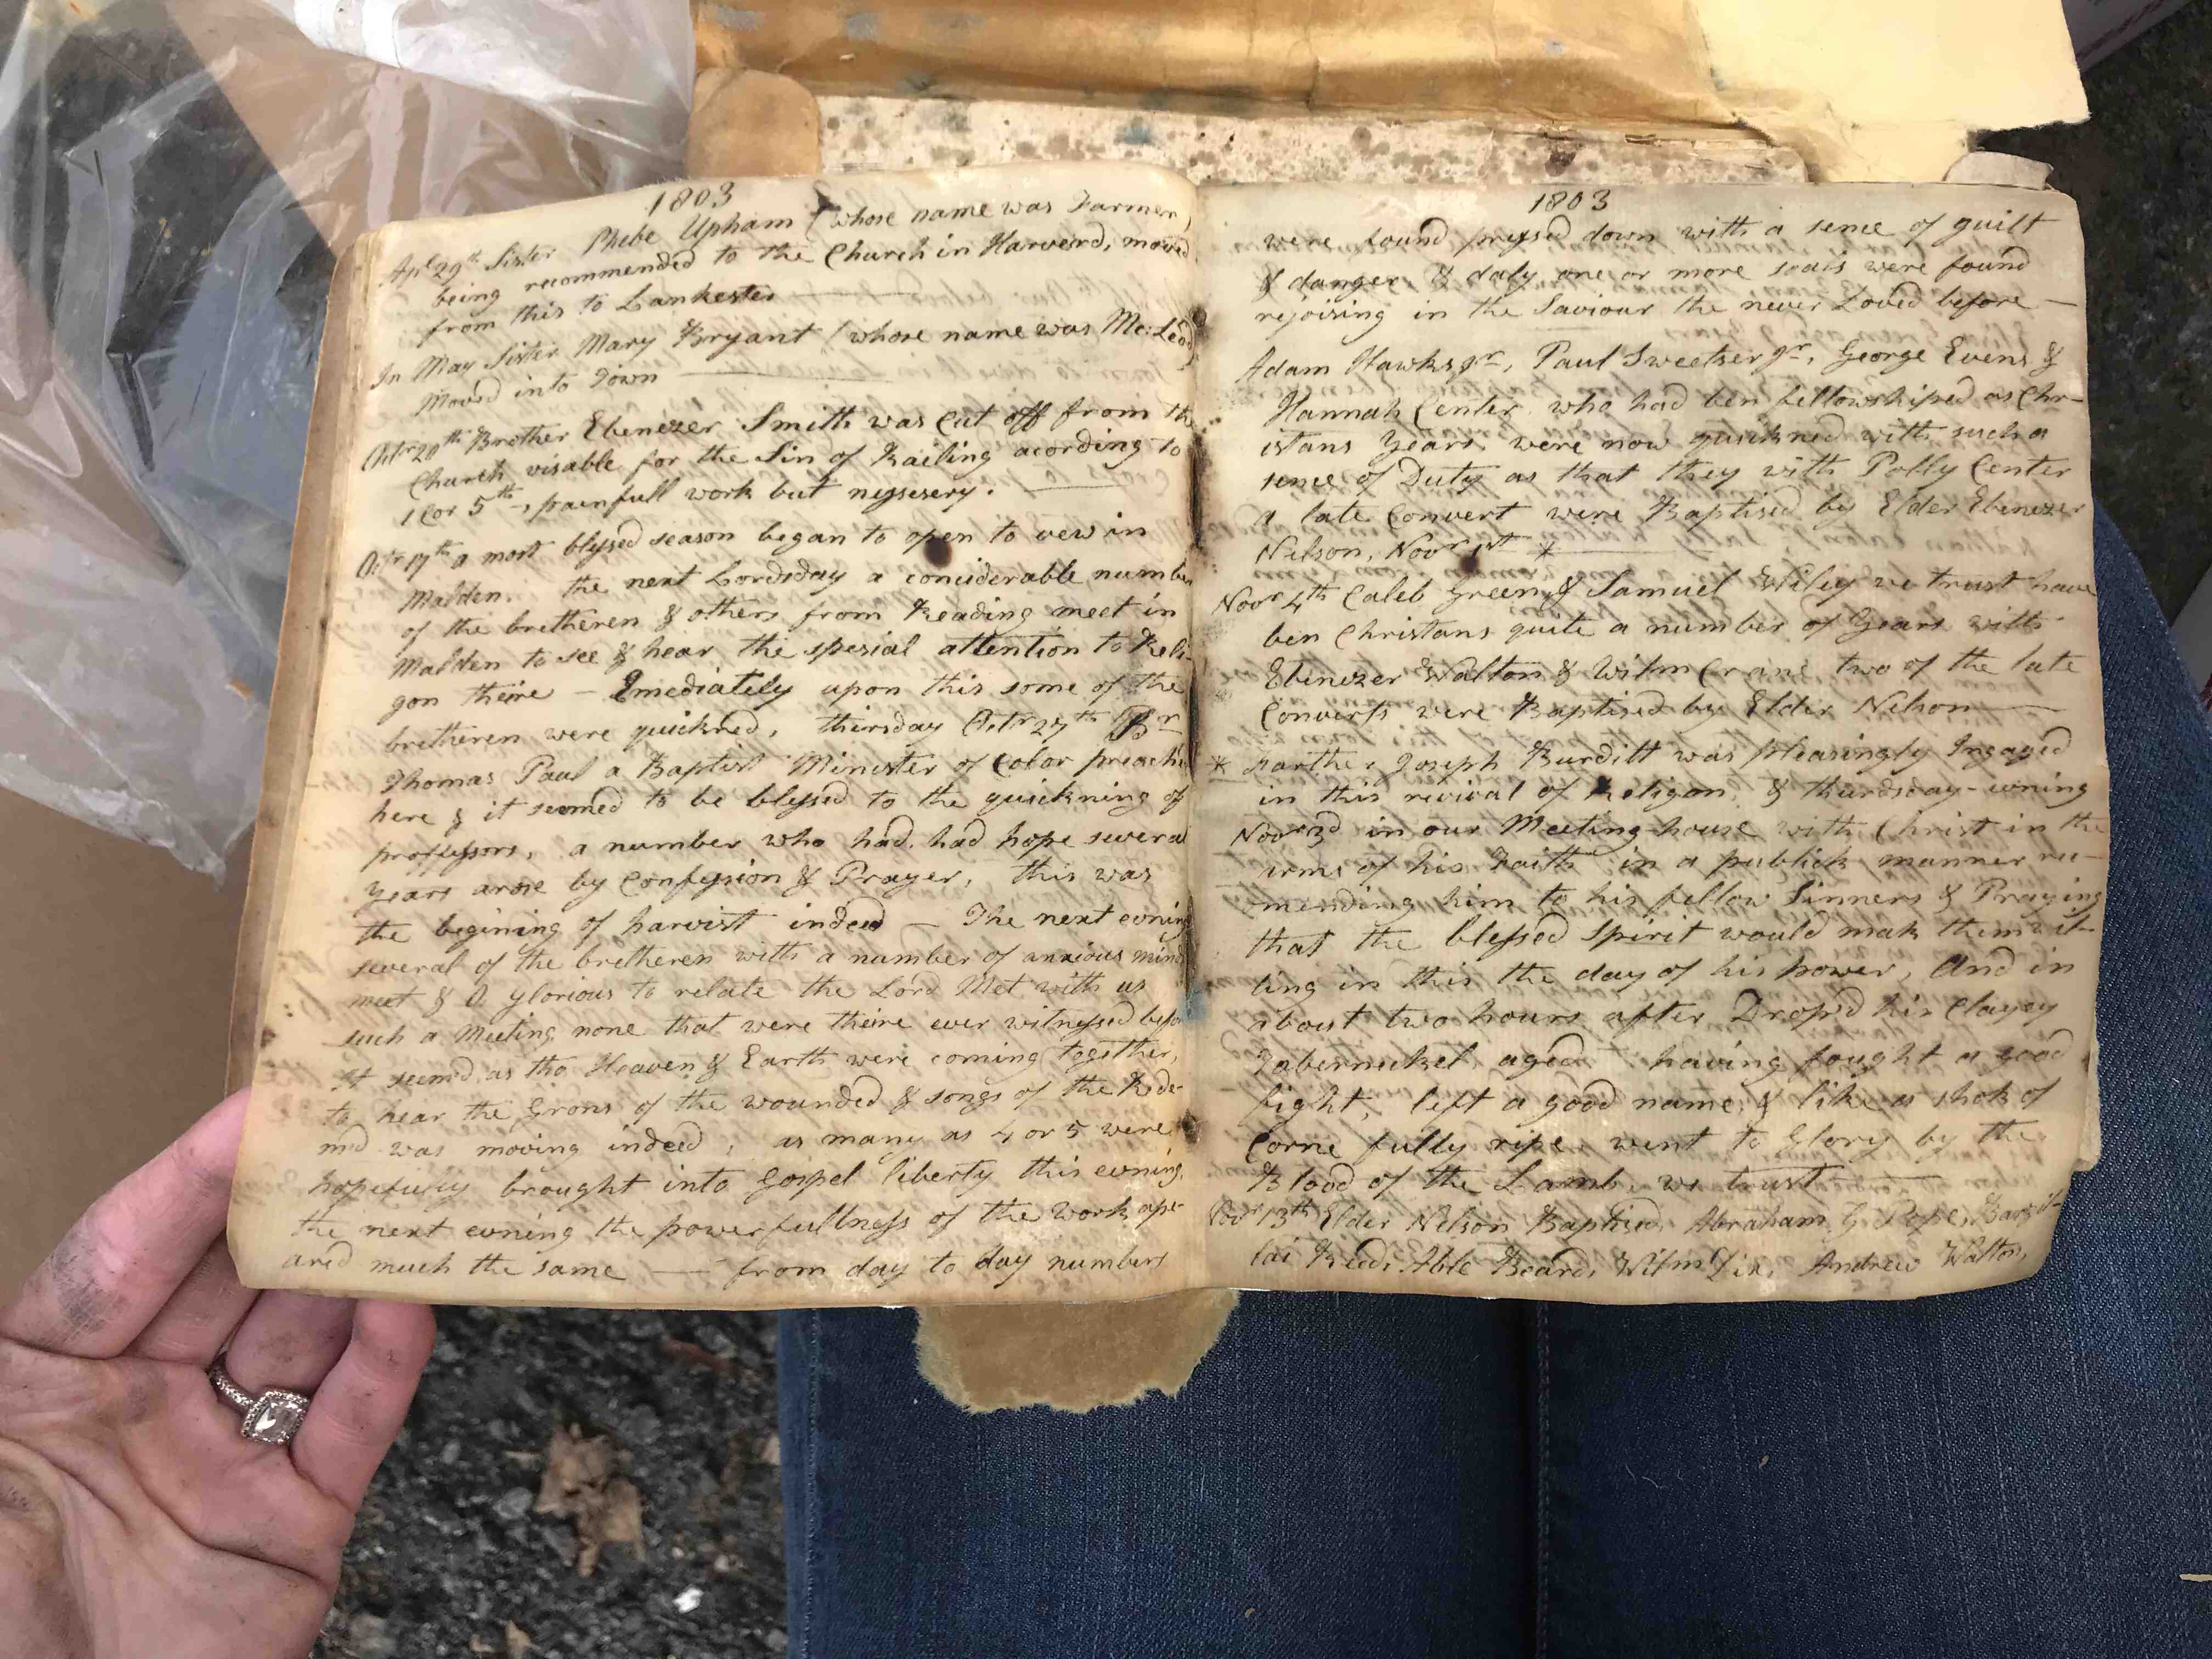 1803
Apl 29th Sister Phebe Upham (whose name was Farmer)
being recommended to the Church in Harverd, moved
from this to Lankester
In May Sister Mary Bryant (whose name was Mc:Leod)
Moved into Town
Octr 20th Brother Ebenezer Smith was Cut off from the
Church visable for the Sin of Railing acording to
1 Cor 5th, painfull work but nessesery.
Octr 17th a most blessed season began to open to vew in
Malden. the next Lordsday a conciderable number
of the bretheren & others from Reading meet in
Malden to see & hear the spesial attention to Reli-
gon theire – Imediately upon this some of the
bretheren were quickned, thirsday Octr 27th Br
Thomas Paul a Baptist Minister of Color preach'd
here & it seemed to be blessed to the quickning of
professors, a number who had, had hope several
years arose by Confession & Prayer, this was
the begining of harvist indeed – The next evning
several of the bretheren with a number of anxious minds
meet & O glorious to relate the Lord Met with us
such a Meeting none that were theire ever witnessed before
It seemd as tho Heaven & Earth were coming together,
to hear the Grons of the wounded & songs of the Rede-
md was moving indeed, as many as 4 or 5 were
hopefully brought into Gospel liberty this evning,
the next evning the powerfullness of the work ape-
ared much the same — from day to day numbers
1803
were found pressd down with a sence of guilt
& danger & daly one or more souls were found
rejoising in the Saviour the never Loved before —
Adam Hawks jr, Paul Sweetser jr, George Evens &
Hannah Center, who had ben fellowshiped as Chr-
istans years were now quickned with such a
sence of Duty as that they with Polly Center
a late Convert were Baptised by Elder Ebenezer
Nelson, Novr 1st *
Novr 4th Caleb Green & Samuel Wiley we trust have
ben Christans quite a number of years with
Ebenezer Walton & Wilm Crane two of the late
Converts were Baptised by Elder Nelson
* Farther Joseph Burditt was pleasingly Ingaged
in this revival of Religon, & thursday-evning
Novr 3d in our Meeting-house with Christ in the
arms of his Faith in a publick manner
-mending him to his fellow Sinners & Praying
that the blessed Spirit would mak them wil-
ling in this the day of his power, And in
about two hours after Drop'd his Clayey
Tabernickel aged having fought a good
fight, left a good name, & like a shok of
Corne fully ripe went to Glory by the
Blood of the Lamb we trust
Novr 13th Elder Nelson Baptised, Abraham G. Pope, Barzil-
lai Reed, Able Beard, Wilm Dix, Andrew Walton,